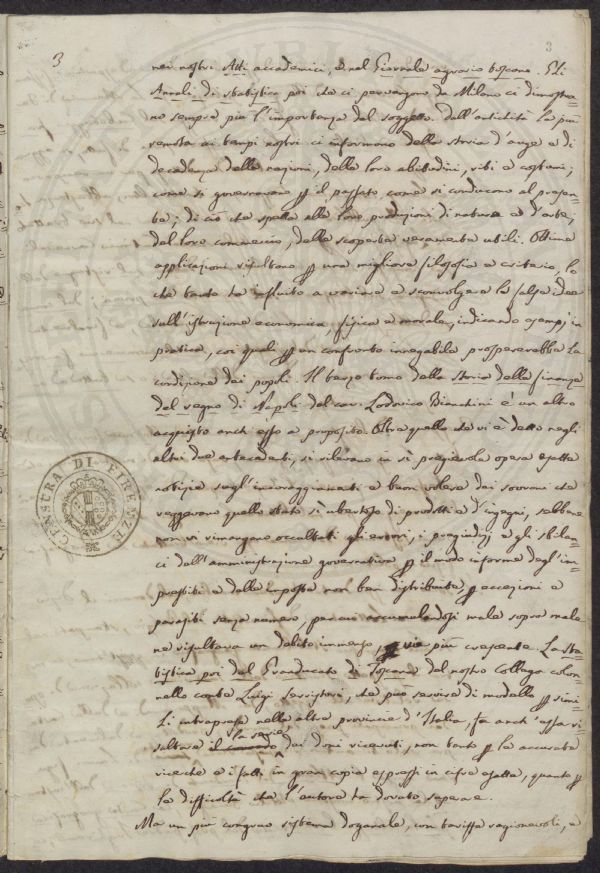 3
3
nei nostri Atti accademici, e nel Giornale agrario toscano. Gli
Annali di statistica poi che ci pervengono da Milano ci dimostra-
no sempre più l'importanza del soggetto. Dall'antichità la più
remota ai tempi nostri ci informano della storia d'auge e di
decadenza delle nazioni, delle loro abitudini, riti e costumi;
come si governavano p il passato come si conducono al presen-
te; di ciò che spetta alle loro produzioni di natura e d'arte;
del loro commercio, delle scoperte veramente utili. Ottime
applicazioni risultano p una migliore filosofia e criterio, lo
che tanto ha influito a variare e sconvolgere le false idee
sull'istruzione economica, fisica e morale, indicando esempj in
pratica, coi quali p un confronto innegabile prospererebbe la
condizione dei popoli. Il terzo tomo della storia delle finanze
del regno di Napoli del cav. Lodovico Bianchini è un altro
acquisto anch'esso a proposito. Oltre quello che vi è detto negli
altri due antecedenti, si rilevano in sì pregievole opera esatte
notizie sugl'incoraggiamenti e buon volere dei sovrani che
reggevano quello stato sì ubertoso di prodotti e d'ingegni, sebbene
non vi rimangano occultati gli errori, i pregiudizj e gli sbilan-
ci dell'amministrazione governativa p il modo informe degl'im-
prestiti e delle imposte non ben distribuite, p eccezioni e
parasiti senza numero, per cui accumulandosi male sopra male
ne risultava un debito immenso, vie più crescente. La sta-
tistica poi del Granducato di Toscana del nostro Collega colon-
nello conte Luigi Serristori, che può servire di modello p simi-
li intraprese nelle altre provincie d'Italia, fa anch'essa ri-
saltare la serie dei doni ricevuti, non tanto p le accurate
ricerche e i fatti in gran copia espressi in cifre esatte, quanto p
le difficoltà che l'autore ha dovuto superare.
Ma un più congruo sistema doganale, con tariffe ragionevoli, e
CENSURA DI FIRENZE